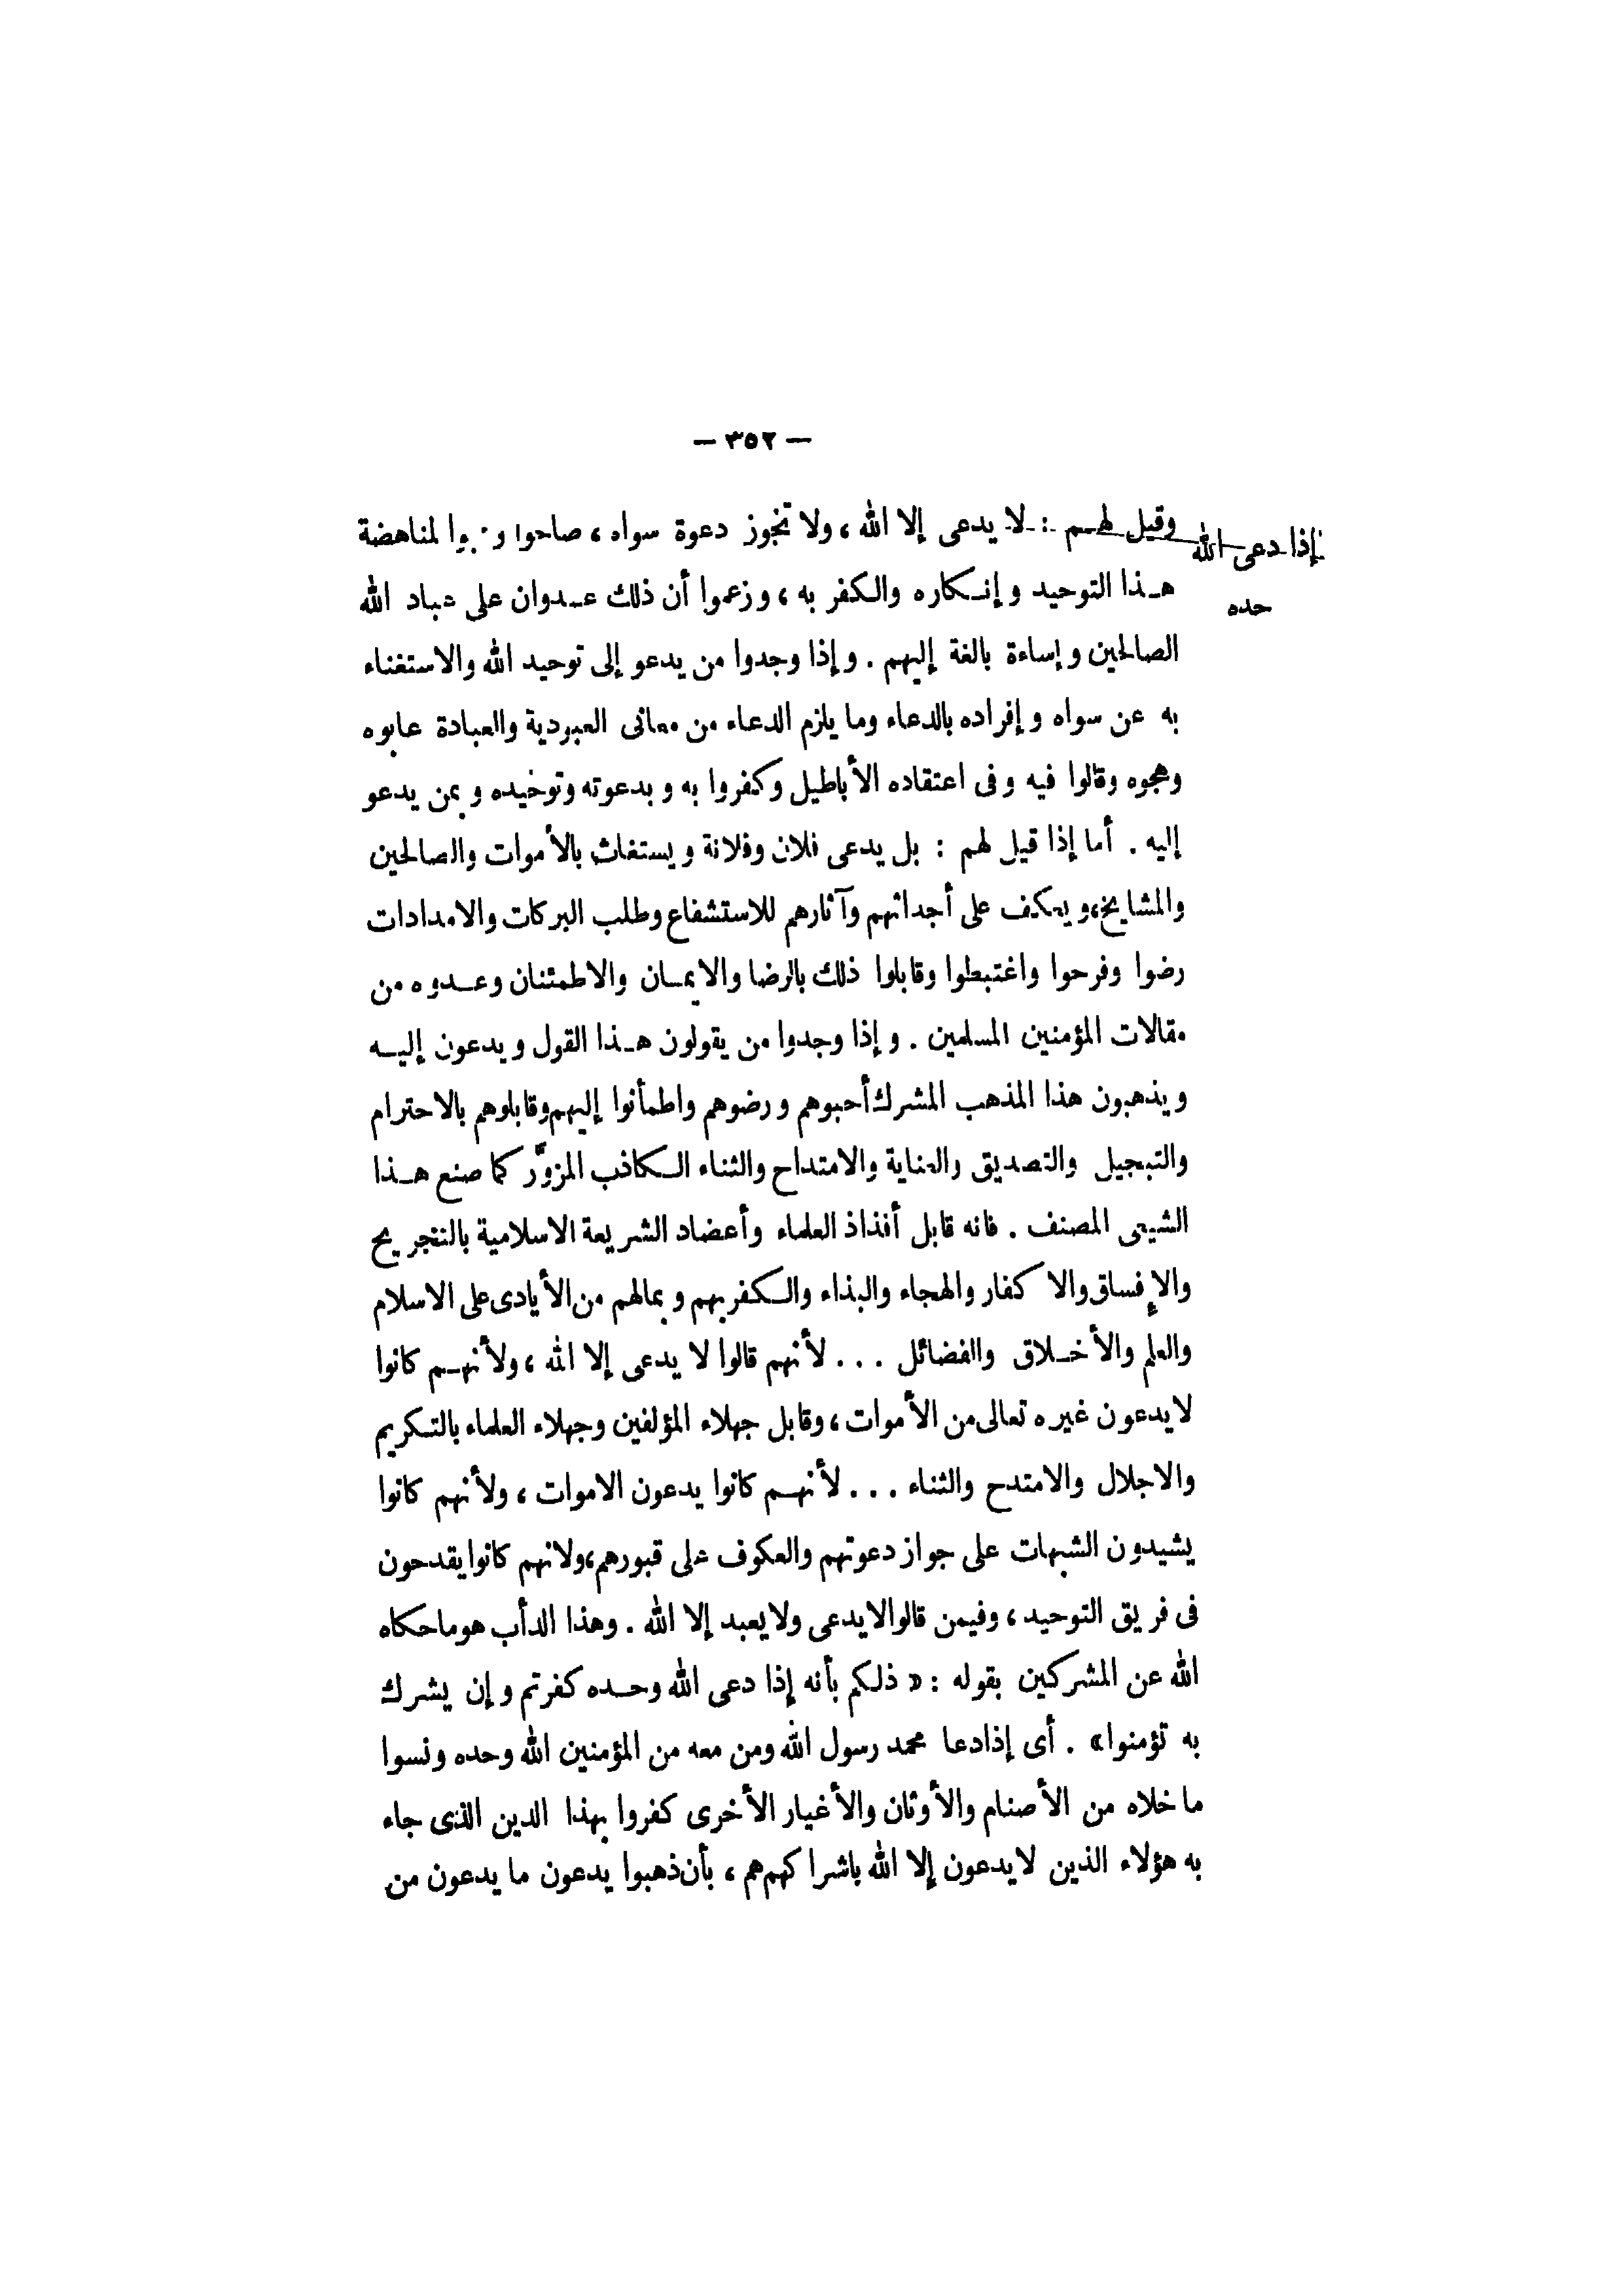 — ٣٥٢ —
إذا دعى الله
حده
وقيل لهم : لا يدعى إلا الله ، ولا تجوز دعوة سواه ، صاحوا لمناهضة
هذا التوحيد وإنكاره والكفر به ، وزعموا أن ذلك عدوان على عباد الله
الصالحين وإساءة بالغة إليهم . وإذا وجدوا من يدعو إلى توحيد الله والاستغناء
به عن سواه وإفراده بالدعاء وما يلزم الدعاء من معانى العبودية والعبادة عابوه
وهجوه وقالوا فيه وفى اعتقاده الأباطيل وكفروا به وبدعوته وتوحيده وبمن يدعو
إليه . أما إذا قيل لهم : بل يدعى فلان وفلانة ويستغاث بالأموات والصالحين
والمشايخ، ويعكف على أجداثهم وآثارهم للاستشفاع وطلب البركات والامدادات
رضوا وفرحوا واغتبطوا وقابلوا ذلك بالرضا والايمان والاطمئنان وعدوه من
مقالات المؤمنين المسلمين . وإذا وجدوا من يقولون هذا القول ويدعون إليه
ويذهبون هذا المذهب المشرك أحبوهم ورضوهم واطمأنوا إليهم وقابلوهم بالاحترام
والتبجيل والتصديق والعناية والامتداح والثناء الكاذب المزوَّر كما صنع هذا
الشيعى المصنف . فانه قابل أفذاذ العلماء وأعضاد الشريعة الاسلامية بالتجريح
والإفساق والاكفار والهجاء والبذاء والكفر بهم وبمالهم من الأيادى على الاسلام
والعلم والأخلاق والفضائل . . . لأنهم قالوا لا يدعى إلا الله ، ولأنهم كانوا
لا يدعون غيره تعالى من الأموات ، وقابل جهلاء المؤلفين وجهلاء العلماء بالتكريم
والاجلال والامتدح والثناء . . . لأنهم كانوا يدعون الاموات ، ولأنهم كانوا
يشيدون الشبهات على جواز دعوتهم والعكوف على قبورهم، ولانهم كانوا يقدحون
فى فريق التوحيد ، وفيمن قالوا لا يدعى ولا يعبد إلا الله . وهذا الدأب هو ما حكاه
الله عن المشركين بقوله : « ذلكم بأنه إذا دعى الله وحده كفرتم وإن يشرك
به تؤمنوا » . أى إذا دعا محمد رسول الله ومن معه من المؤمنين الله وحده ونسوا
ما خلاه من الأصنام والأوثان والأغيار الأخرى كفروا بهذا الدين الذى جاء
به هؤلاء الذين لا يدعون إلا الله باشراكهم هم ، بأن ذهبوا يدعون ما يدعون من